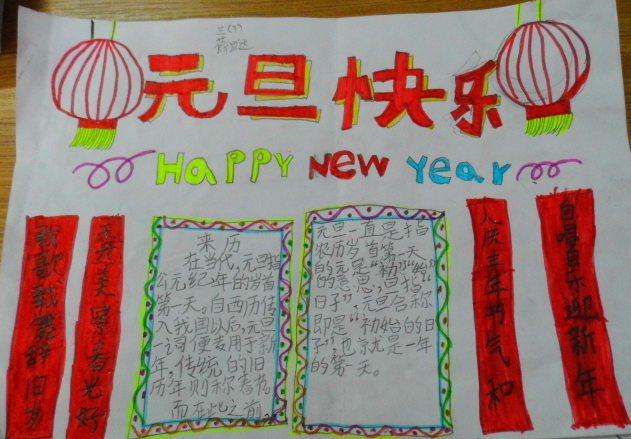 元旦快乐
HAPPY NEW YEAR
载歌载舞辞旧岁
美景春光好
来历
在当代，元旦指
公元纪年的岁首
第一天。自西历传
入我国以后，元旦
一词便专用于新
年，传统的旧
历年则称春节。
而在此之前，
元旦一直是指
农历岁首第一天
的元是“初”“始”
的意思，旦指“
日子”，元旦合称
即是“初始的日
子”，也就是一年
的第一天。
人庆丰年节气和
自唱自乐迎新年